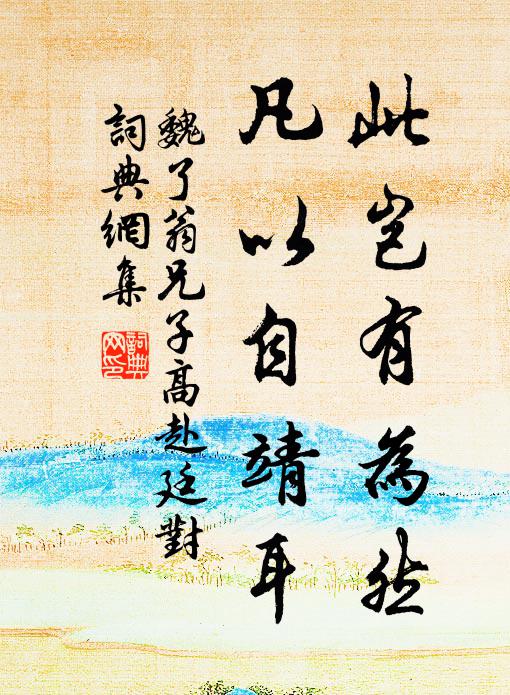 此岂有為然
凡以自靖耳
魏了翁兄子高赴廷對
詞典網集
詞典网印